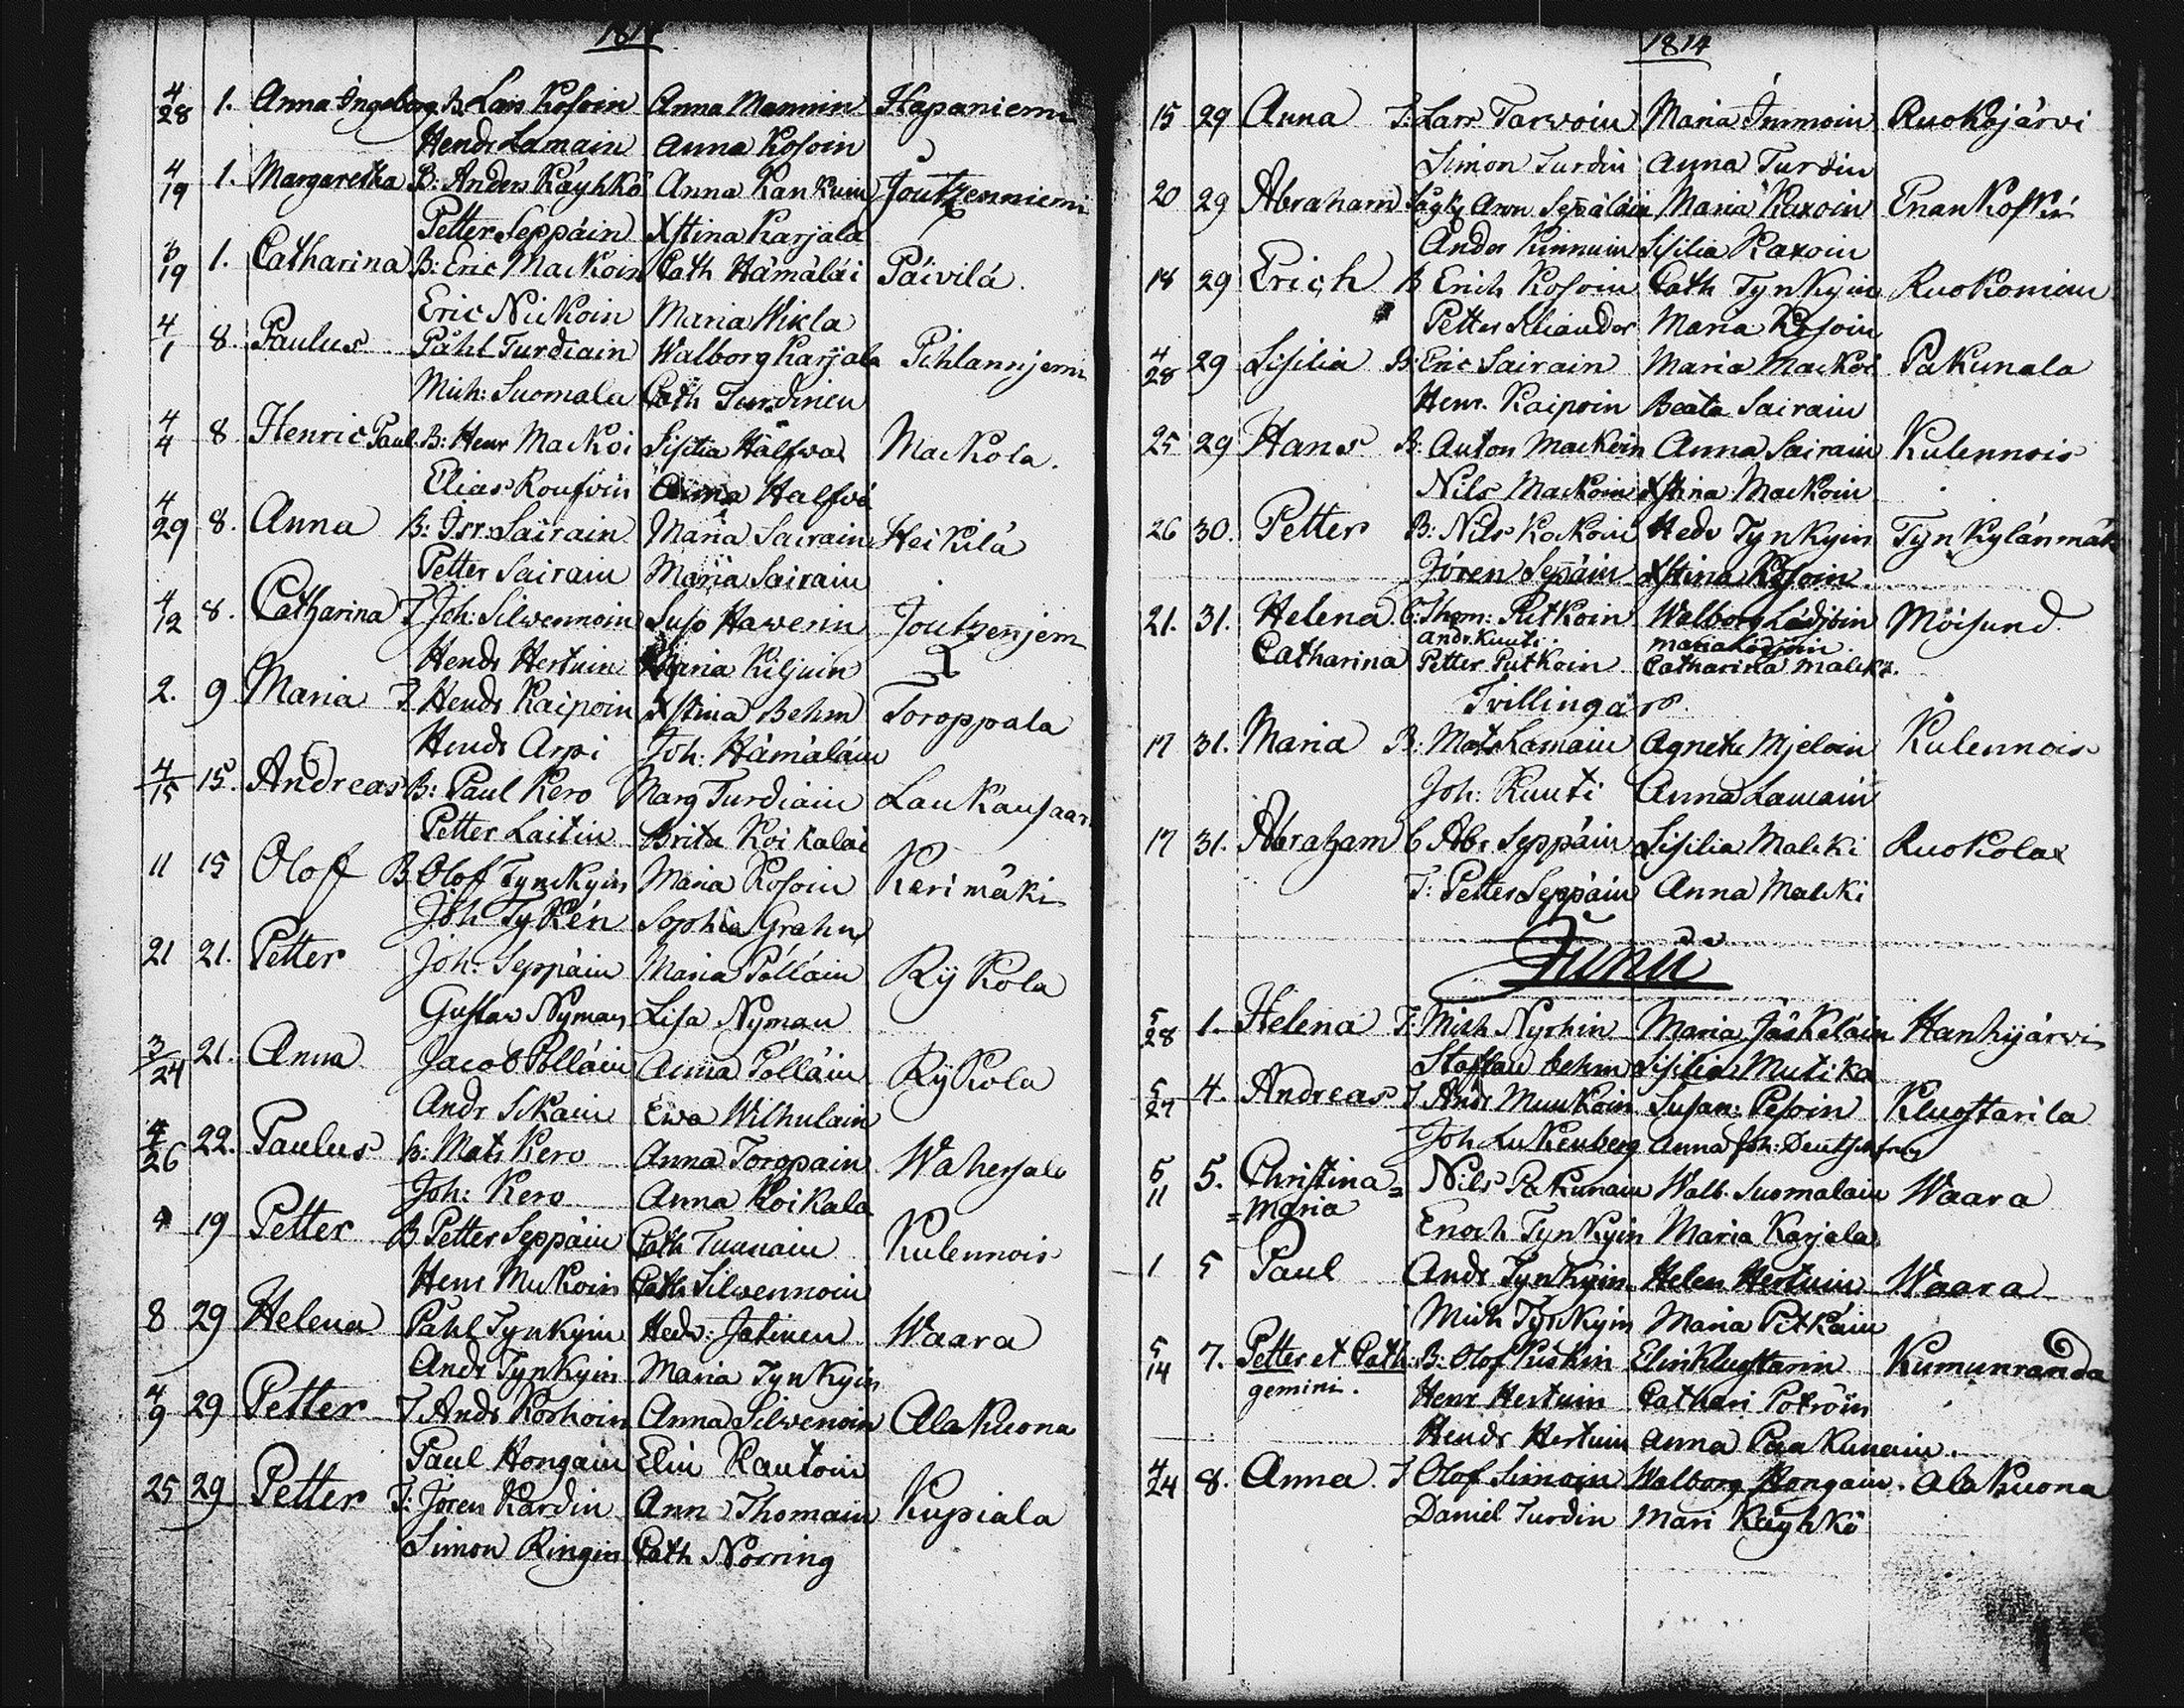 1814
4/28 1. Anna Ingeborg B. Lars Kosoin Anna Mannin Hapaniemi
Hendr Lamain Anna Kosoin
4/19 1. Margaretha B: Anders Käyhkö Anna Kankuin Joutzenniemi
Petter Seppäin Xstina Karjala
3/19 1. Catharina B: Eric Mackoin Cath Hämäläi Päivilä.
Eric Nickoin Maria Wikla
4/1 8. Paulus Påhl Turdiain Walborg Karjala Pihlannjemi
Mich: Suomala Cath Turdinen
4/4 8. Henric Paul B: Henr Mackoi Sisilia Hälfwa Mackola.
Elias Koufvin Anna Halfvä
4/29 8. Anna B: Isr: Sairain Maria Sairain Heikilä
Petter Sairain Maria Sairain
4/12 8. Catharina T Joh: Silwennoin Suso Hawerin Joutzenjem
Hendr Hertuin Maria Kiljuin
2. 9. Maria T Hendr Kaipoin Xstina Behm Toroppala
Hendr Arpi Joh: Hämäläin
4/15 15. Andreas B: Paul Kero Marg Turdiain Laukansaari
Petter Laitin Brita Koikalai
11 15 Olof B Olof Tynckyin Maria Kosoin Kerimäki
Joh Tykén Sophia Grahn
21 21. Petter Joh: Seppäin Maria Pölläin Rÿkola
Gustav Nyman Lisa Nyman
3/24 21. Anna Jacob Pölläin Anna Pölläin Rÿkola
Andr Sikain Ewa Wilhulain
4/26 22. Paulus B: Mats Kero Anna Toropain Wahersalo
Joh: Kero Anna Koikala
4 19 Petter B Petter Seppäin Cath Tuunain Kulennois
Henr Mukoin Cath Silwennoin
8 29 Helena Påhl Tynkyin Hedv: Jatinen Waara
Andr Tynkyin Maria Tynkyin
4/9 29 Petter T Andr Korhoin Anna Silwenoin Alakuona
Paul Hongain Elin Rautoin
25 29 Petter T: Jören Kardin Ann Thomain Kupiala
Simon Ringin Cath Norring
1814
15 29 Anna T: Lars Tarwoin Maria Immoin Ruokojärvi
Simon Turdin Anna Turdin
20 29 Abraham Aron Sepäläin Maria Kaxoin Enankoski
Ander Kinnuin Sisilia Kaxoin
14 29 Erich B Erich Kosoin Cath Tynkyin Ruokoniem
Petter Maria Kosoin
4/28 29 Sisilia B: Eric Sairain Maria Mackoi Pakunala
Henr. Kaipoin Beata Sairain
25 29 Hans B: Anton Mackoin Anna Sairain Kulennois
Nils Mackoin Xstina Mackoin
26 30. Petter B: Nils Kockoin Hedv Tynkyin Tynkylänmäk
Jören Sepäin Xstina Kosoin
21. 31. Helena C: Thom: Putkoin Walborg Lödjöin Möisund
Andr. Kuuti. Maria Lödjöin.
Catharina Petter Putkoin Catharina Malcki.
Tvillingar.
17 31. Maria B: Mats Lamain Agneta Mjeloin Kulennois
Joh: Kuuti Anna Lamain
17 31. Abraham C Abr Seppäin Sisilia Malcki Ruokola
T: Petter Seppäin Anna Malcki
Junii
5/28 1. Helena T: Mich Nyrhin Maria Jäskeläin Hanhijärvi
Staffan Behm Sisilia Mutika
5/27 4. Andreas T Andr Muukoin Susan: Pesoin Klugstarila
Joh Lukenberg Anna Joh:
5/11 5. Christina= Nils Pakunain Walb. Suomalain Waara
=Maria
Enoch Tynkyin Maria Karjala
1 5 Paul Andr Tynkyin Helen Hertuin Waara
Mich Tynkyin Maria Pitkäin
5/14 7. Petter et Cath: B: Olof Kiiskin Elin Klugstarin Kumunranda
gemini. Henr Hertuin Cathari Poträin
Hendr Hertuin Anna Paakunain.
4/24 8. Anna. T Olof Simoin Walborg Hongain. Alakuona
Daniel Turdin Mari Käyhkö